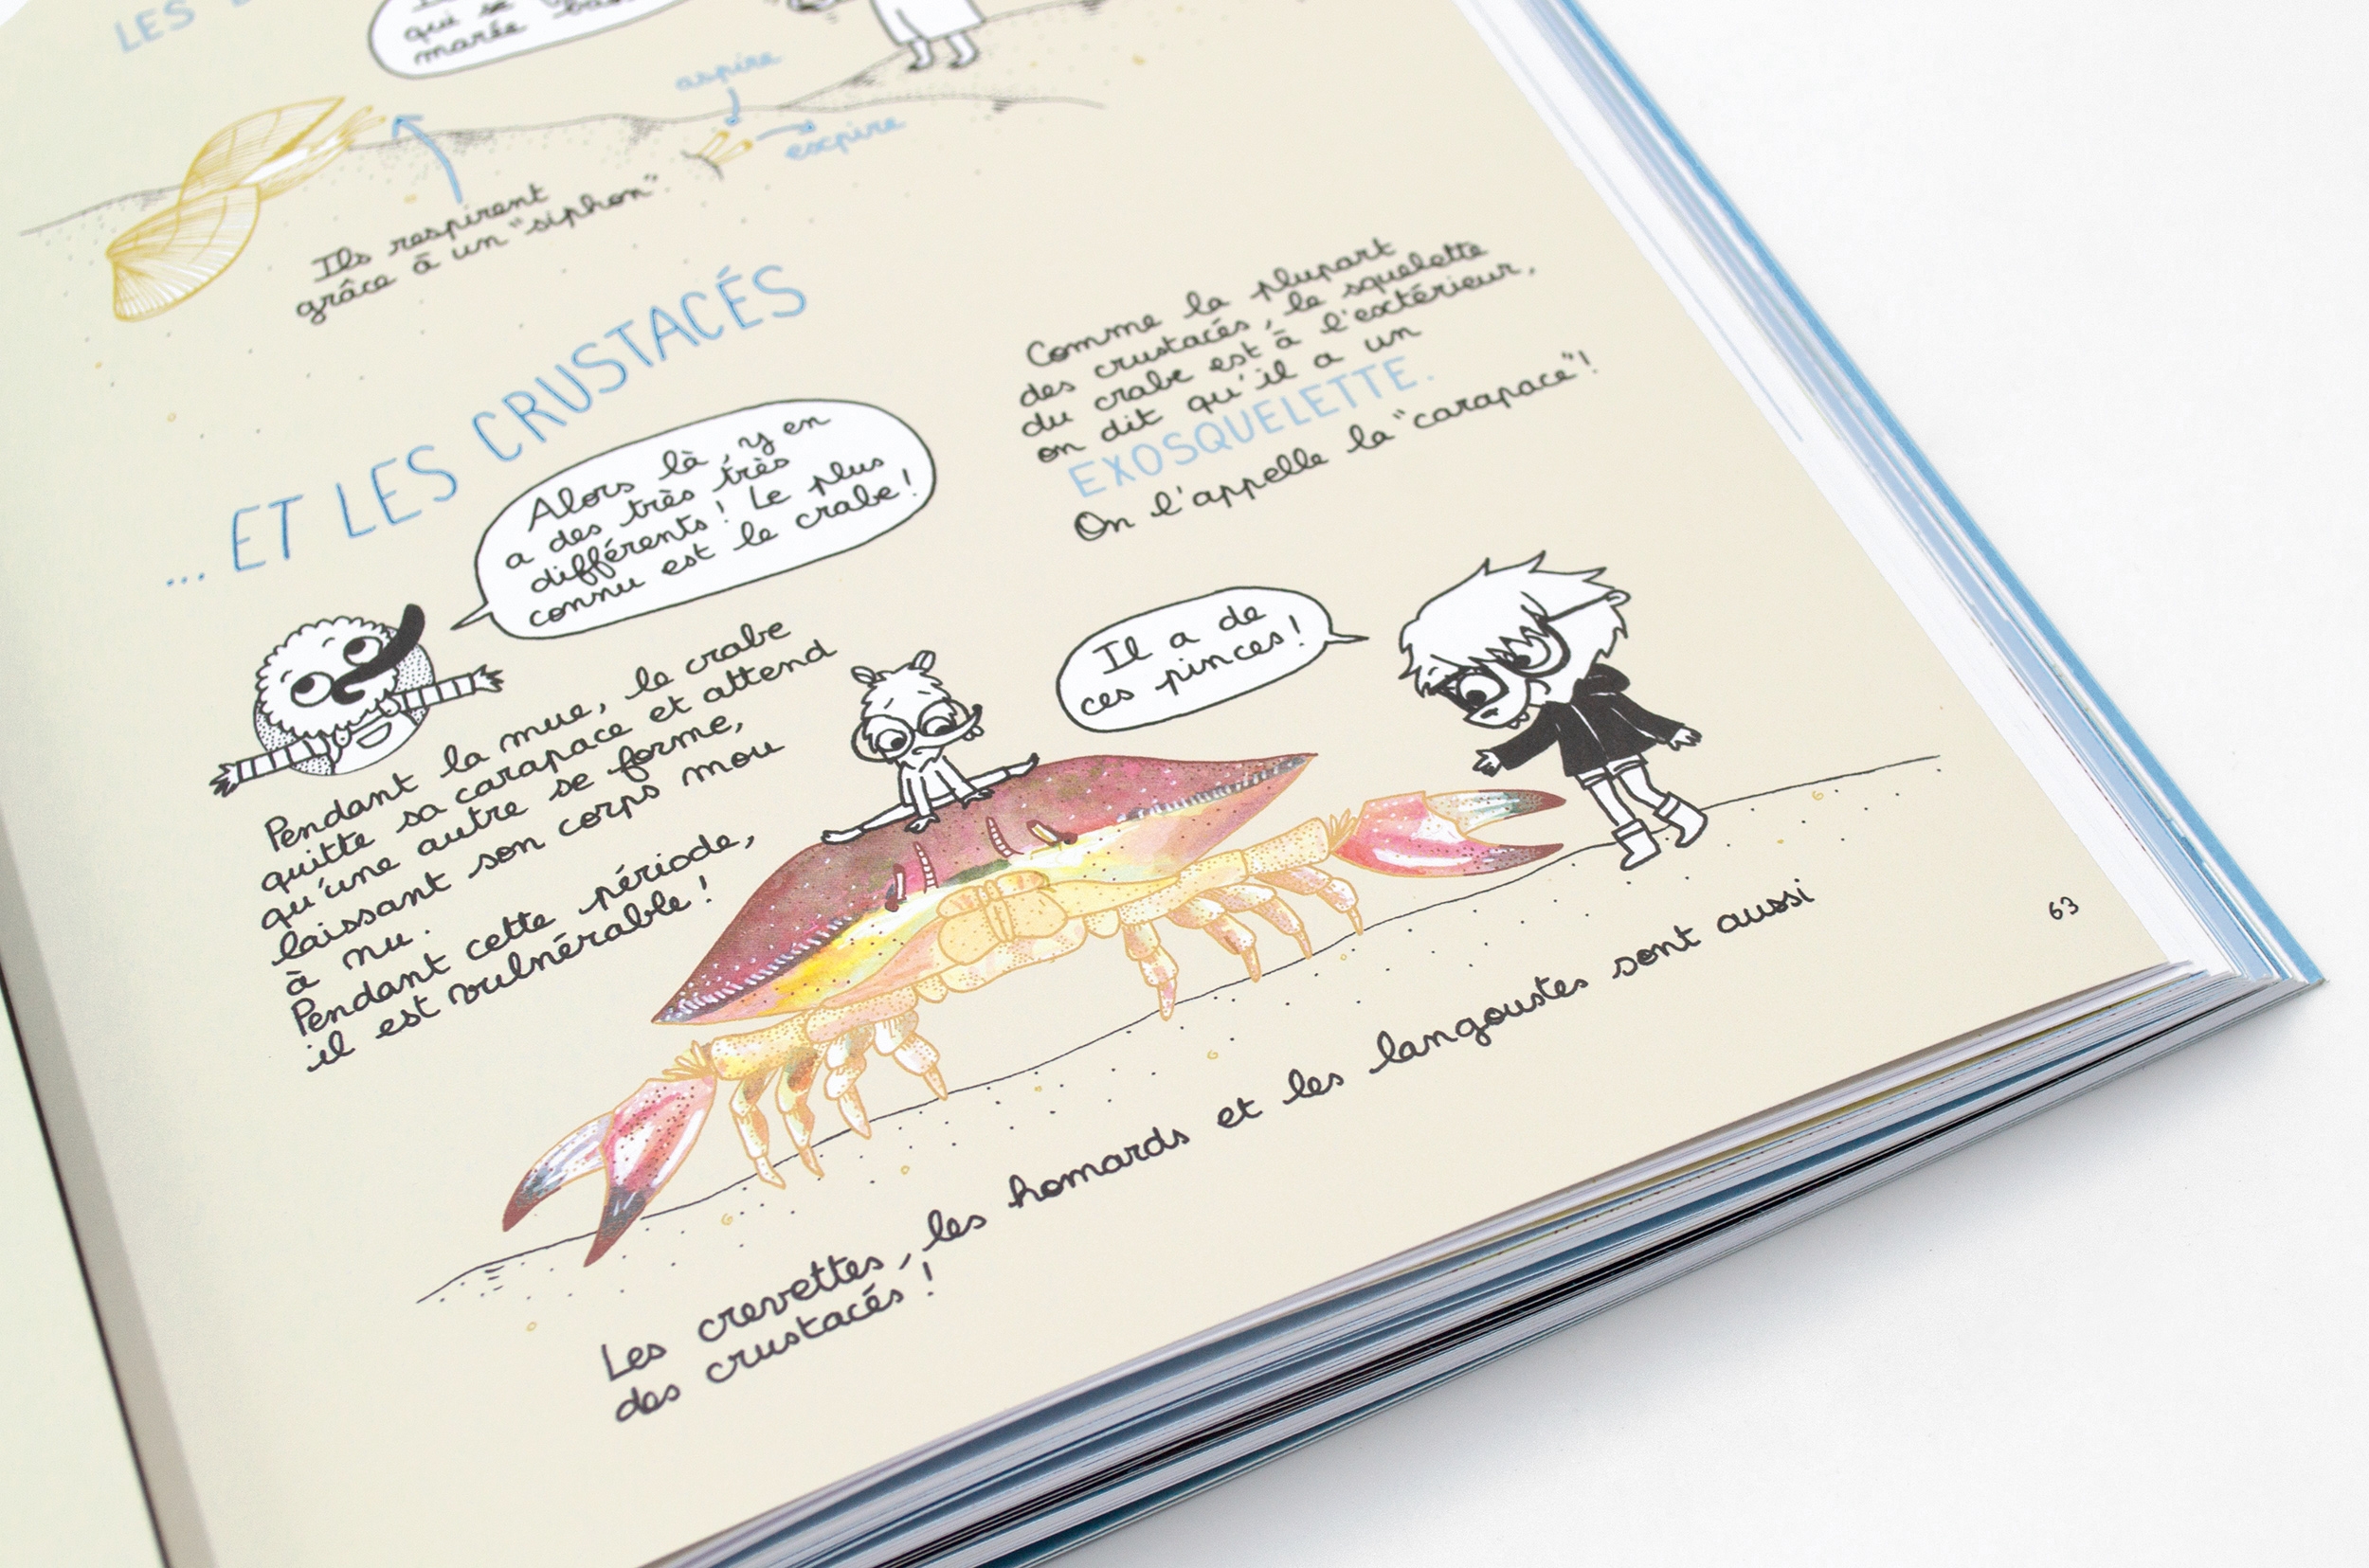 LES
qui se
marée
aspire
expire
Ils respirent
grâce à un "siphon".
... ET LES CRUSTACÉS
Alors là, y en
a des très très
différents ! Le plus
connu est le crabe !
Comme la plupart
des crustacés, le squelette
du crabe est à l'extérieur,
on dit qu'il a un
EXOSQUELETTE.
On l'appelle la "carapace" !
Pendant la mue, le crabe
quitte sa carapace et attend
qu'une autre se forme,
laissant son corps mou
à nu.
Pendant cette période,
il est vulnérable !
Il a de
ces pinces !
Les crevettes, les homards et les langoustes sont aussi
des crustacés !
63